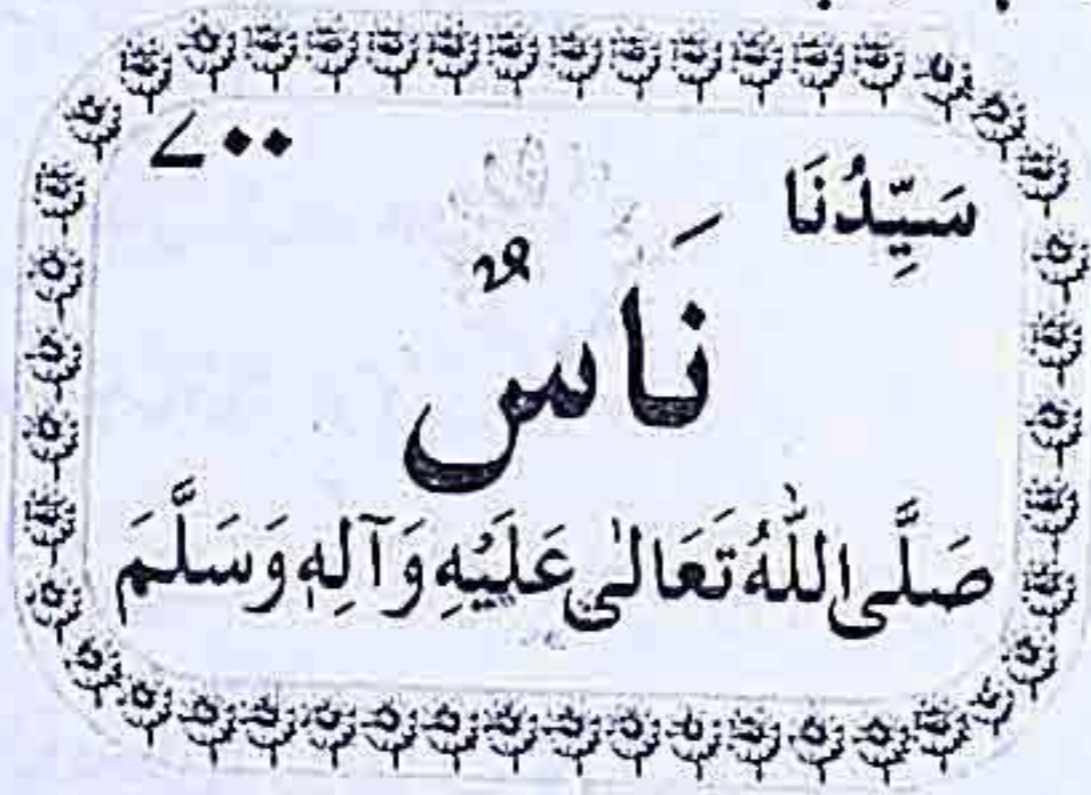 سَيِّدُنَا ۷۰۰
نَاسٌ
صَلَّى اللّٰهُ تَعَالٰى عَلَيْهِ وَآلِهٖ وَسَلَّمَ